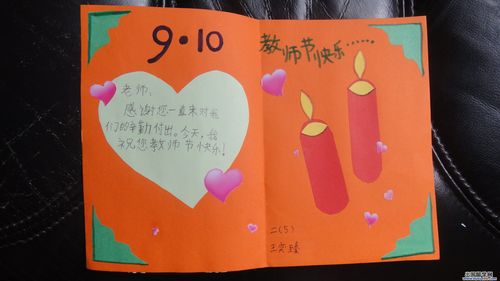 9·10
老师、
感谢您一直来对我
们的辛勤付出。今天，我
祝您教师节快乐！
教师节快乐……
二（5）